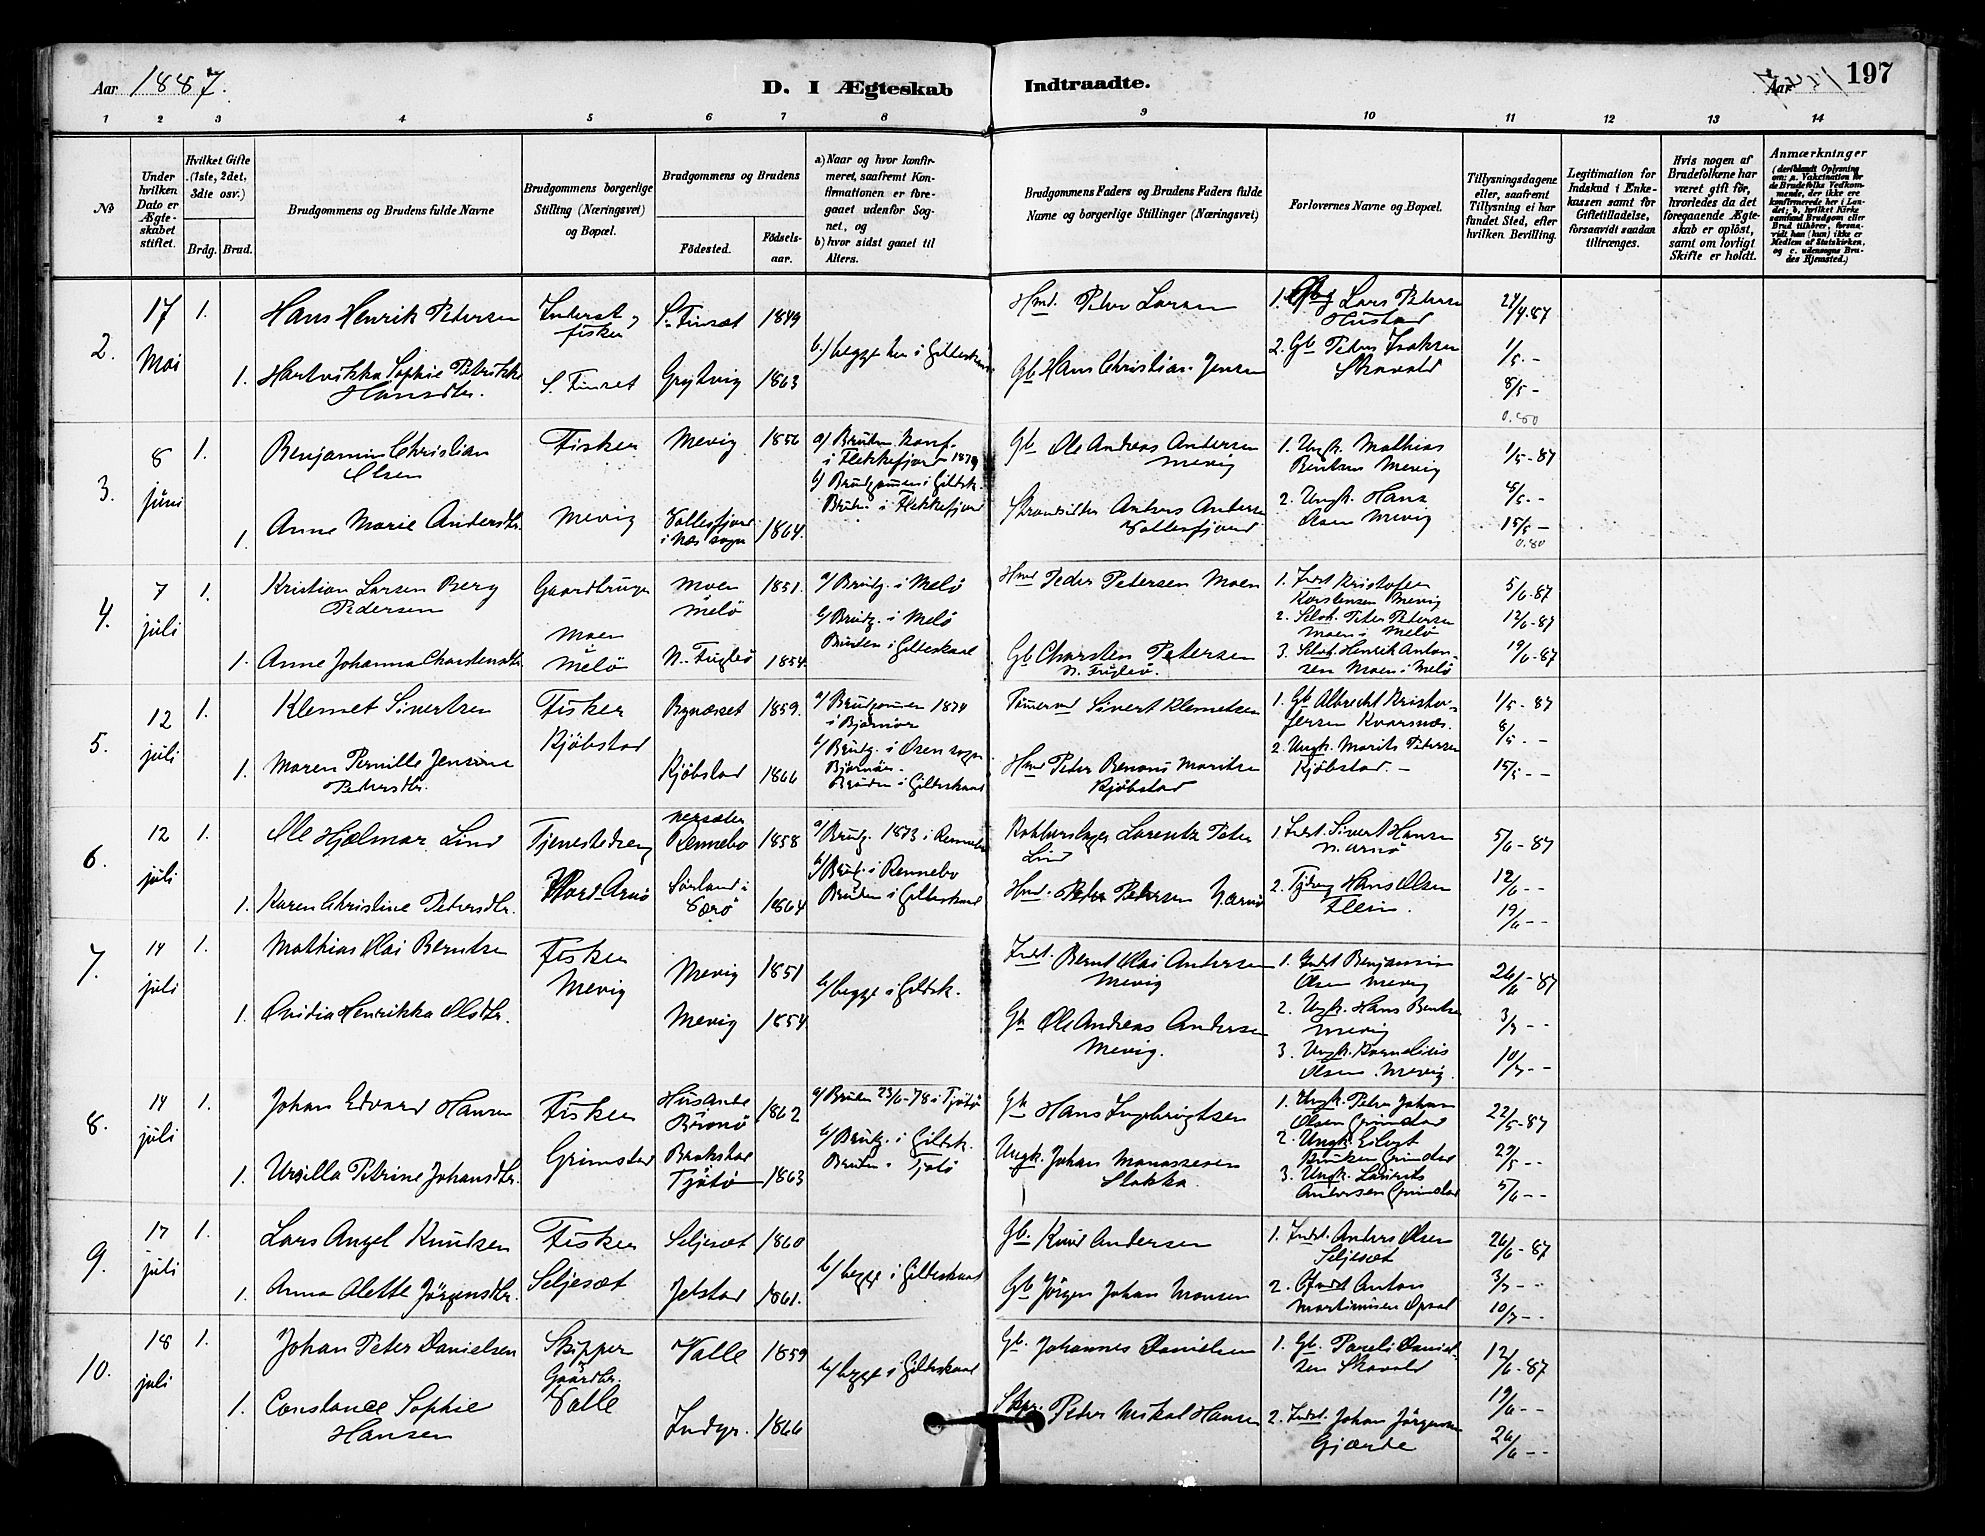 Aar 1887.
D. I Ægteskab Indtraadte.
Aar 197
1 2 3 4 5 6 7 8 9 10 11 12 13 14
№
Under hvilken Dato er Ægteskabet stiftet.
Hvilket Gifte (1ste, 2det, 3die osv.)
Brdg. Brud.
Brudgommens og Brudens fulde Navne
Brudgommens borgerlige Stilling (Næringsvei) og Bopæl.
Brudgommens og Brudens
Fødested. Fødselsaar.
a) Naar og hvor konfirmeret, saafremt Konfirmationen er foregaaet udenfor Sognet, og
b) hvor sidst gaaet til Alters.
Brudgommens Faders og Brudens Faders fulde Navne og borgerlige Stillinger (Næringsvei)
Forlovernes Navne og Bopæl.
Tillysningsdagene eller, saafremt Tillysning ei har fundet Sted, efter hvilken Bevilling.
Legitimation for Indskud i Enkekassen samt for Giftetilladelse, forsaavidt saadan tiltrænges.
Hvis nogen af Brudefolkene har været gift før, hvorledes da det foregaaende Ægteskab er opløst, samt om lovligt Skifte er holdt.
Anmærkninger (deriblandt Oplysning om: a. Vakcination for de Brudefolks Vedkommende, der ikke ere konfirmerede her i Landet; b, hvilket Kirkesamfund Brudgom eller Brud tilhører, forsaavidt han (hun) ikke er Medlem af Statskirken, og c. udensogns Brudes Hjemsted.)
2. 17 Mai 1. Hans Henrik Petersen
Inderst og fisker
S. Finset 1849
b.) begge her i Gildeskaal
Hmd. Peter Larsen
1. Lars Petersen Hustad
24/4-87
1. Hartvikka Sophie Petrikke Hansdtr.
S. Finset Grytvig 1863
Gb Hans Christian Jensen
2. Gb Peder Isaksen Skavold
1/5 -
8/5 -
0.80
3. 8 juni 1. Benjamin Christian Olsen
Fisker Mevig 1856
a) Bruden konf. i Flekkefjord 1879
b) Brudgommen i Gildsk.
Bruden i Flekkefjord
Gb Ole Andreas Andersen Mevig
1. Ungk. Mathias Berntsen Mevig
1/5-87
1. Anne Marie Andersdtr.
Mevig
i Næs sogn 1864.
Strandsidder Anders Andersen
2. Ungk. Hans Olsen Mevig
15/5 -
0.80
4. 7 juli 1. Kristian Larsen Berg Pedersen
Gaardbruger
Moen i Melö 1851.
a) Brudg. i Melö
b) Brudg. i Melö
Bruden i Gildeskaal
Hmd Peder Petersen Moen
1. Indst Kristofer Karstensen Mevig
5/6-87
2. Selvh. Peter Petersen Moen i Melö
12/6-87
1. Anne Johanna Charstensdtr.
Moen i Melö
N. Fuglö 1854.
Gb Charsten Petersen N. Fuglö.
3. Selvh Henrik Antonsen Moen i Melö
19/6-87
5. 12 juli 1. Klemet Sivertsen
Fisker Kjöbstad
Bynæsset 1859.
a/ Brudgommen 1874 i Björnör
b/ Brudg. i Osen sogn Björnör.
Bruden i Gildeskaal
Sivert Klemetsen
1. Gb Albrecht Kristoffersen Kvarsnæs.
1/5-87
8/5 -
1. Maren Pernille Jensine Petersdtr.
Kjöbstad 1866
Hmd Peter Benoni Moritsen Kjöbstad
2. Ungk. Morits Petersen Kjöbstad. -
15/5 - -
6. 12 juli 1. Ole Hjelmar Lind
Tjenestedreng
Rennebo 1858
a/ Brudg. 1873 i Rennebo
b/ Brudg. i Rennebo
Bruden i Gildeskaal
Kobberslager Lorentz Peter Lind
1. Indst. Sivert Hansen N. Arnö
5/6-87
1. Karen Christine Petersdtr.
Nord Arnö
Sörland i Værö 1864
Hmd. Peder Petersen N. Arnö
2. Tjdreng Hans Olsen Flein.
12/6 - -
19/6 - -
7. 14 juli 1. Mathias Olai Berntsen
Fisker Mevig
Mevig 1851
b/ begge i Gildsk.
Indst. Bernt Olai Andersen Mevig
1. Indst Benjamin Olsen Mevig
26/6-87
1. Ovidia Henrikka Olsdtr.
Mevig 1854
Gb Ole Andreas Andersen Mevig.
2. Ungk. Hans Berntsen Mevig
3/7 - -
3. Ungk. Kornelius Olsen Mevig.
10/7 - -
8. 14 juli 1. Johan Edvard Hansen
Fisker Grimstad
Brönö 1862
a/ Bruden 23/6-78 i Tjötö
b/ Brudg. i Gildsk.
Bruden - Tjötö
Gb Hans Ingebrigtsen
1. Ungk. Peder Johan Olsen Grimstad
22/5-87
2. Ungk. Grimstad
29/5 - -
1. Ursilla Petrine Johansdtr.
Tjötö 1863
Ungk. Johan Manassesen Stokka.
3. Ungk. Laurits Andersen Grimstad
5/6 - -
9. 17 juli 1. Lars Angel Knudsen
Fisker Seljesæt
Seljesæt 1860
b/ begge i Gildeskaal
Gb. Knud Andersen
1. Indst. Anders Olsen Seljesæt
26/6-87
1. Anna Olette Jörgensdtr.
Jelstad 1861.
Gb Jörgen Johan Monsen
2. Anton Martinusen Opsal
3/7 - -
10/7 - -
10. 18 juli 1. Johan Peter Danielsen
Skipper & Gaardbr. Valle
Valle 1859
b/ begge i Gildeskaal
Gb. Johannes Danielsen
1. Gb. Pareli Danielsen Skavold
12/6-87
1. Constance Sophie Hansen
Indyr. 1866
Skpr. Peder Mikal Hansen
2. Indst. Johan Jörgensen Gjærde
19/6 - -
26/6 - -